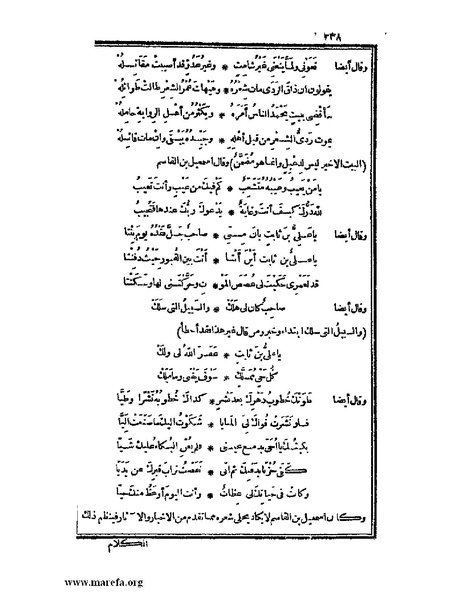 ٢٣٨
وقال أيضا نعوني ولما ينعني غير شامت * وغير عدو قد أصيبت مقاتله
يقولون ان ذاق الردى مات شعره * وهيهات عمر الشعر طالت طوائله
سأقضى ببيت يحمد الناس أمره * ويكثر من أهل الرواية حامله
يموت ردىّ الشعر من قبل أهله * وجيده يبقى وان مات قائله
(البيت الاخير ليس لدعبل وانما هو مضمن) وقال اسمعيل بن القاسم
يا من يعيب وعيبه متشعب * كم فيك من عيب وأنت تعيب
لله درك كيف أنت وغاية * يدعوك ربك عندها فتجيب
وقال أيضا يا على بن ثابت بان منى * صاحب جل فقده يوم بنتا
يا على بن ثابت أين أنتا * أنت بين القبور حيث دفنتا
قد لعمرى حكيت لى غصص المو * ت وحركتنى لها وسكنتا
وقال أيضا صاحب كان لى هلك * والسبيل التى سلك
(والسبيل التى سلك ابتداء وخبر ومن قال غير هذا فقد أخطأ)
يا على بن ثابت * غفر الله لى ولك
كل حى مملك * سوف يفنى وما ملك
وقال أيضا طوتك خطوب دهرك بعد نشر * كذاك خطوبه نشرا وطيا
فلو نشرت قواك لى المنايا * شكوت اليك ما صنعت اليا
بكيتك يا أخى بدمع عينى * فلم يغن البكاء عليك شيا
كفى حزنا بدفنك ثم انى * نفضت تراب قبرك عن يديا
وكانت فى حياتك لى عظات * وأنت اليوم أوعظ منك حيا
وكان اسمعيل بن القاسم لا يكاد يخلى شعره مما تقدم من الاخبار والآثار فينظم ذلك
الكلام
www.marefa.org